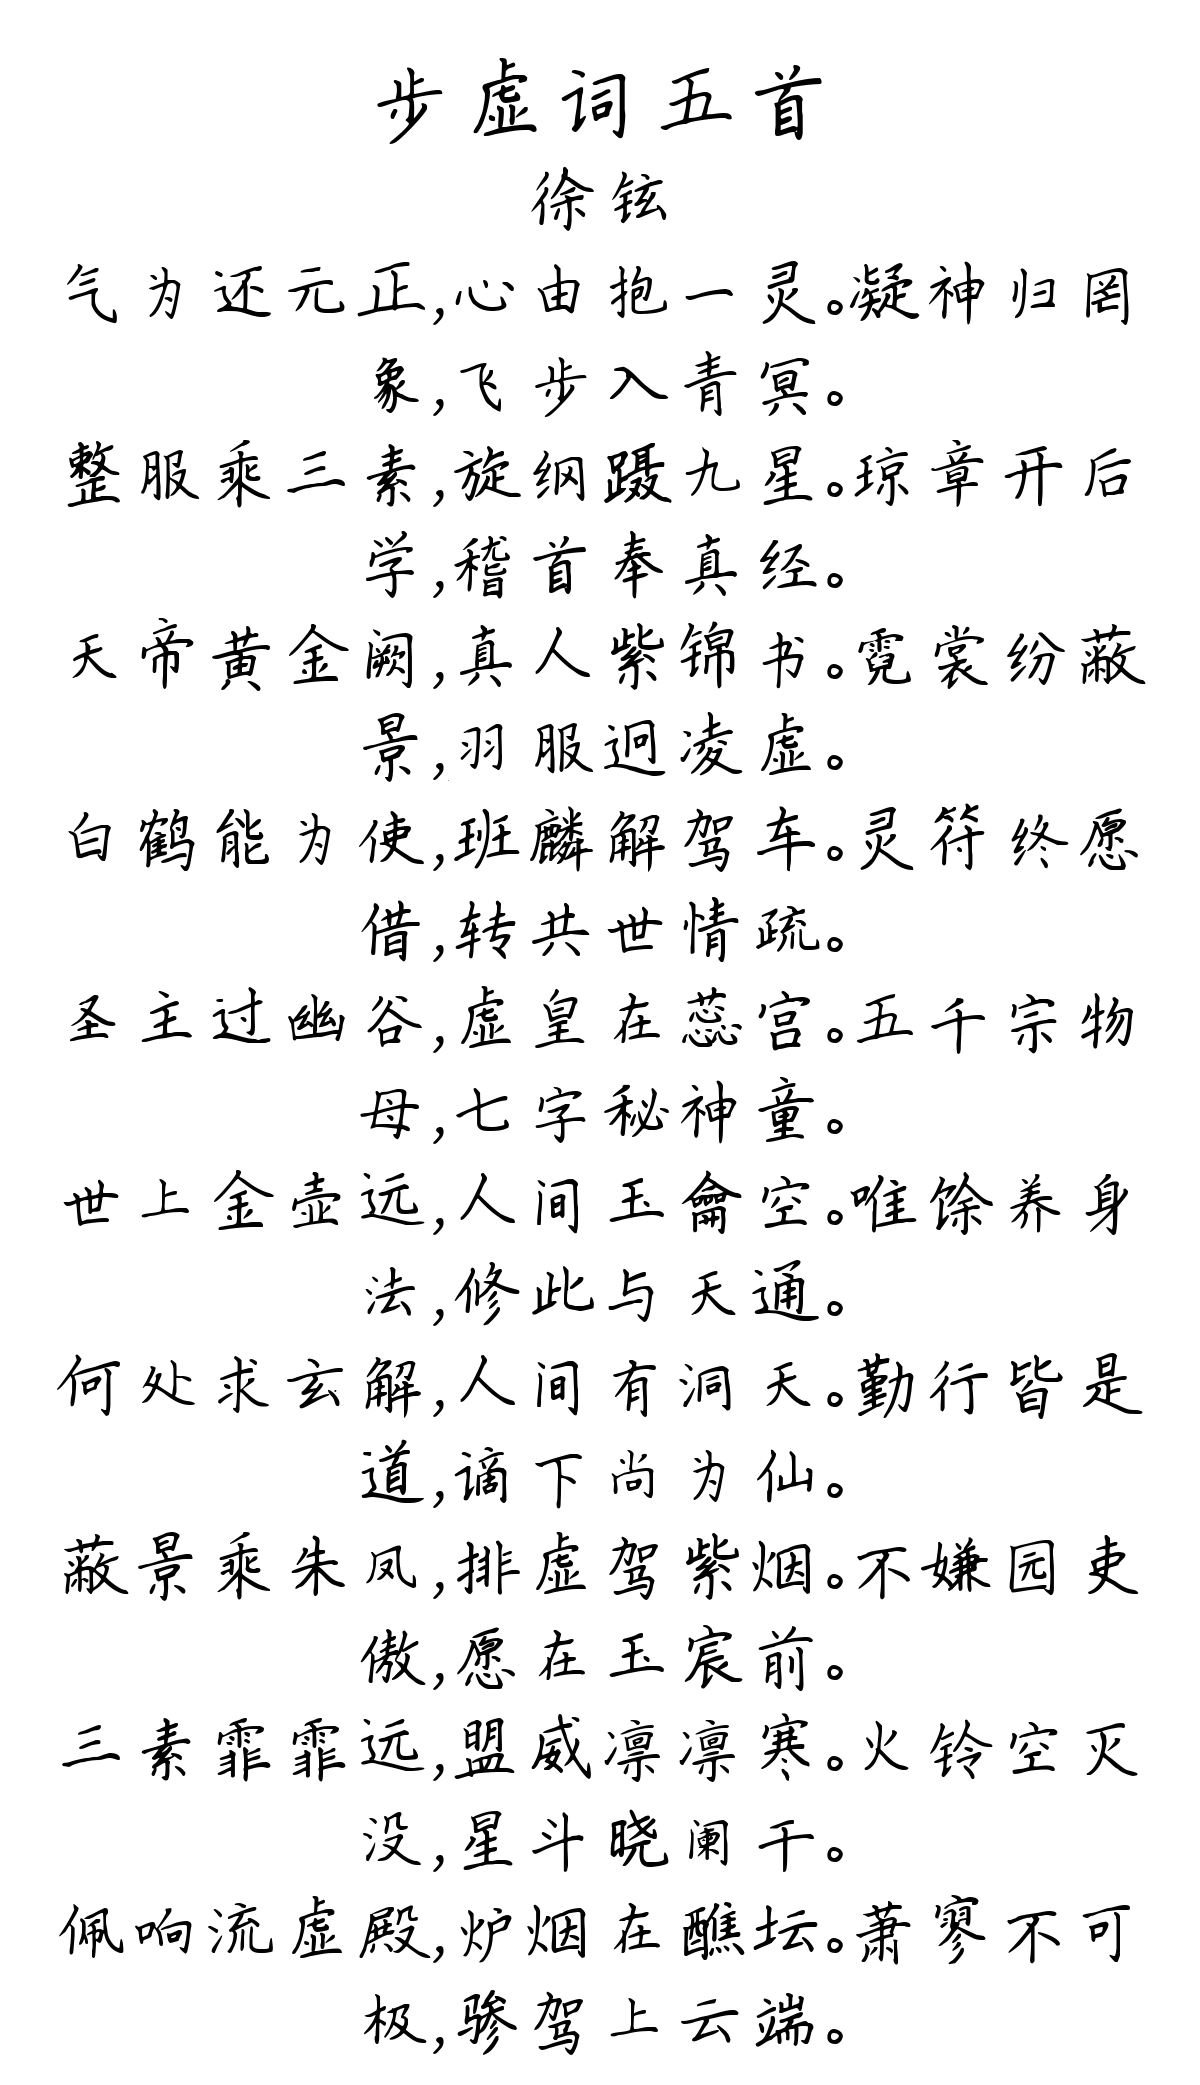 步虚词五首
徐铉
气为还元正,心由抱一灵。凝神归罔
象,飞步入青冥。
整服乘三素,旋纲蹑九星。琼章开后
学,稽首奉真经。
天帝黄金阙,真人紫锦书。霓裳纷蔽
景,羽服迥凌虚。
白鹤能为使,班麟解驾车。灵符终愿
借,转共世情疏。
圣主过幽谷,虚皇在蕊宫。五千宗物
母,七字秘神童。
世上金壶远,人间玉龠空。唯馀养身
法,修此与天通。
何处求玄解,人间有洞天。勤行皆是
道,谪下尚为仙。
蔽景乘朱凤,排虚驾紫烟。不嫌园吏
傲,愿在玉宸前。
三素霏霏远,盟威凛凛寒。火铃空灭
没,星斗晓阑干。
佩响流虚殿,炉烟在醮坛。萧寥不可
极,骖驾上云端。